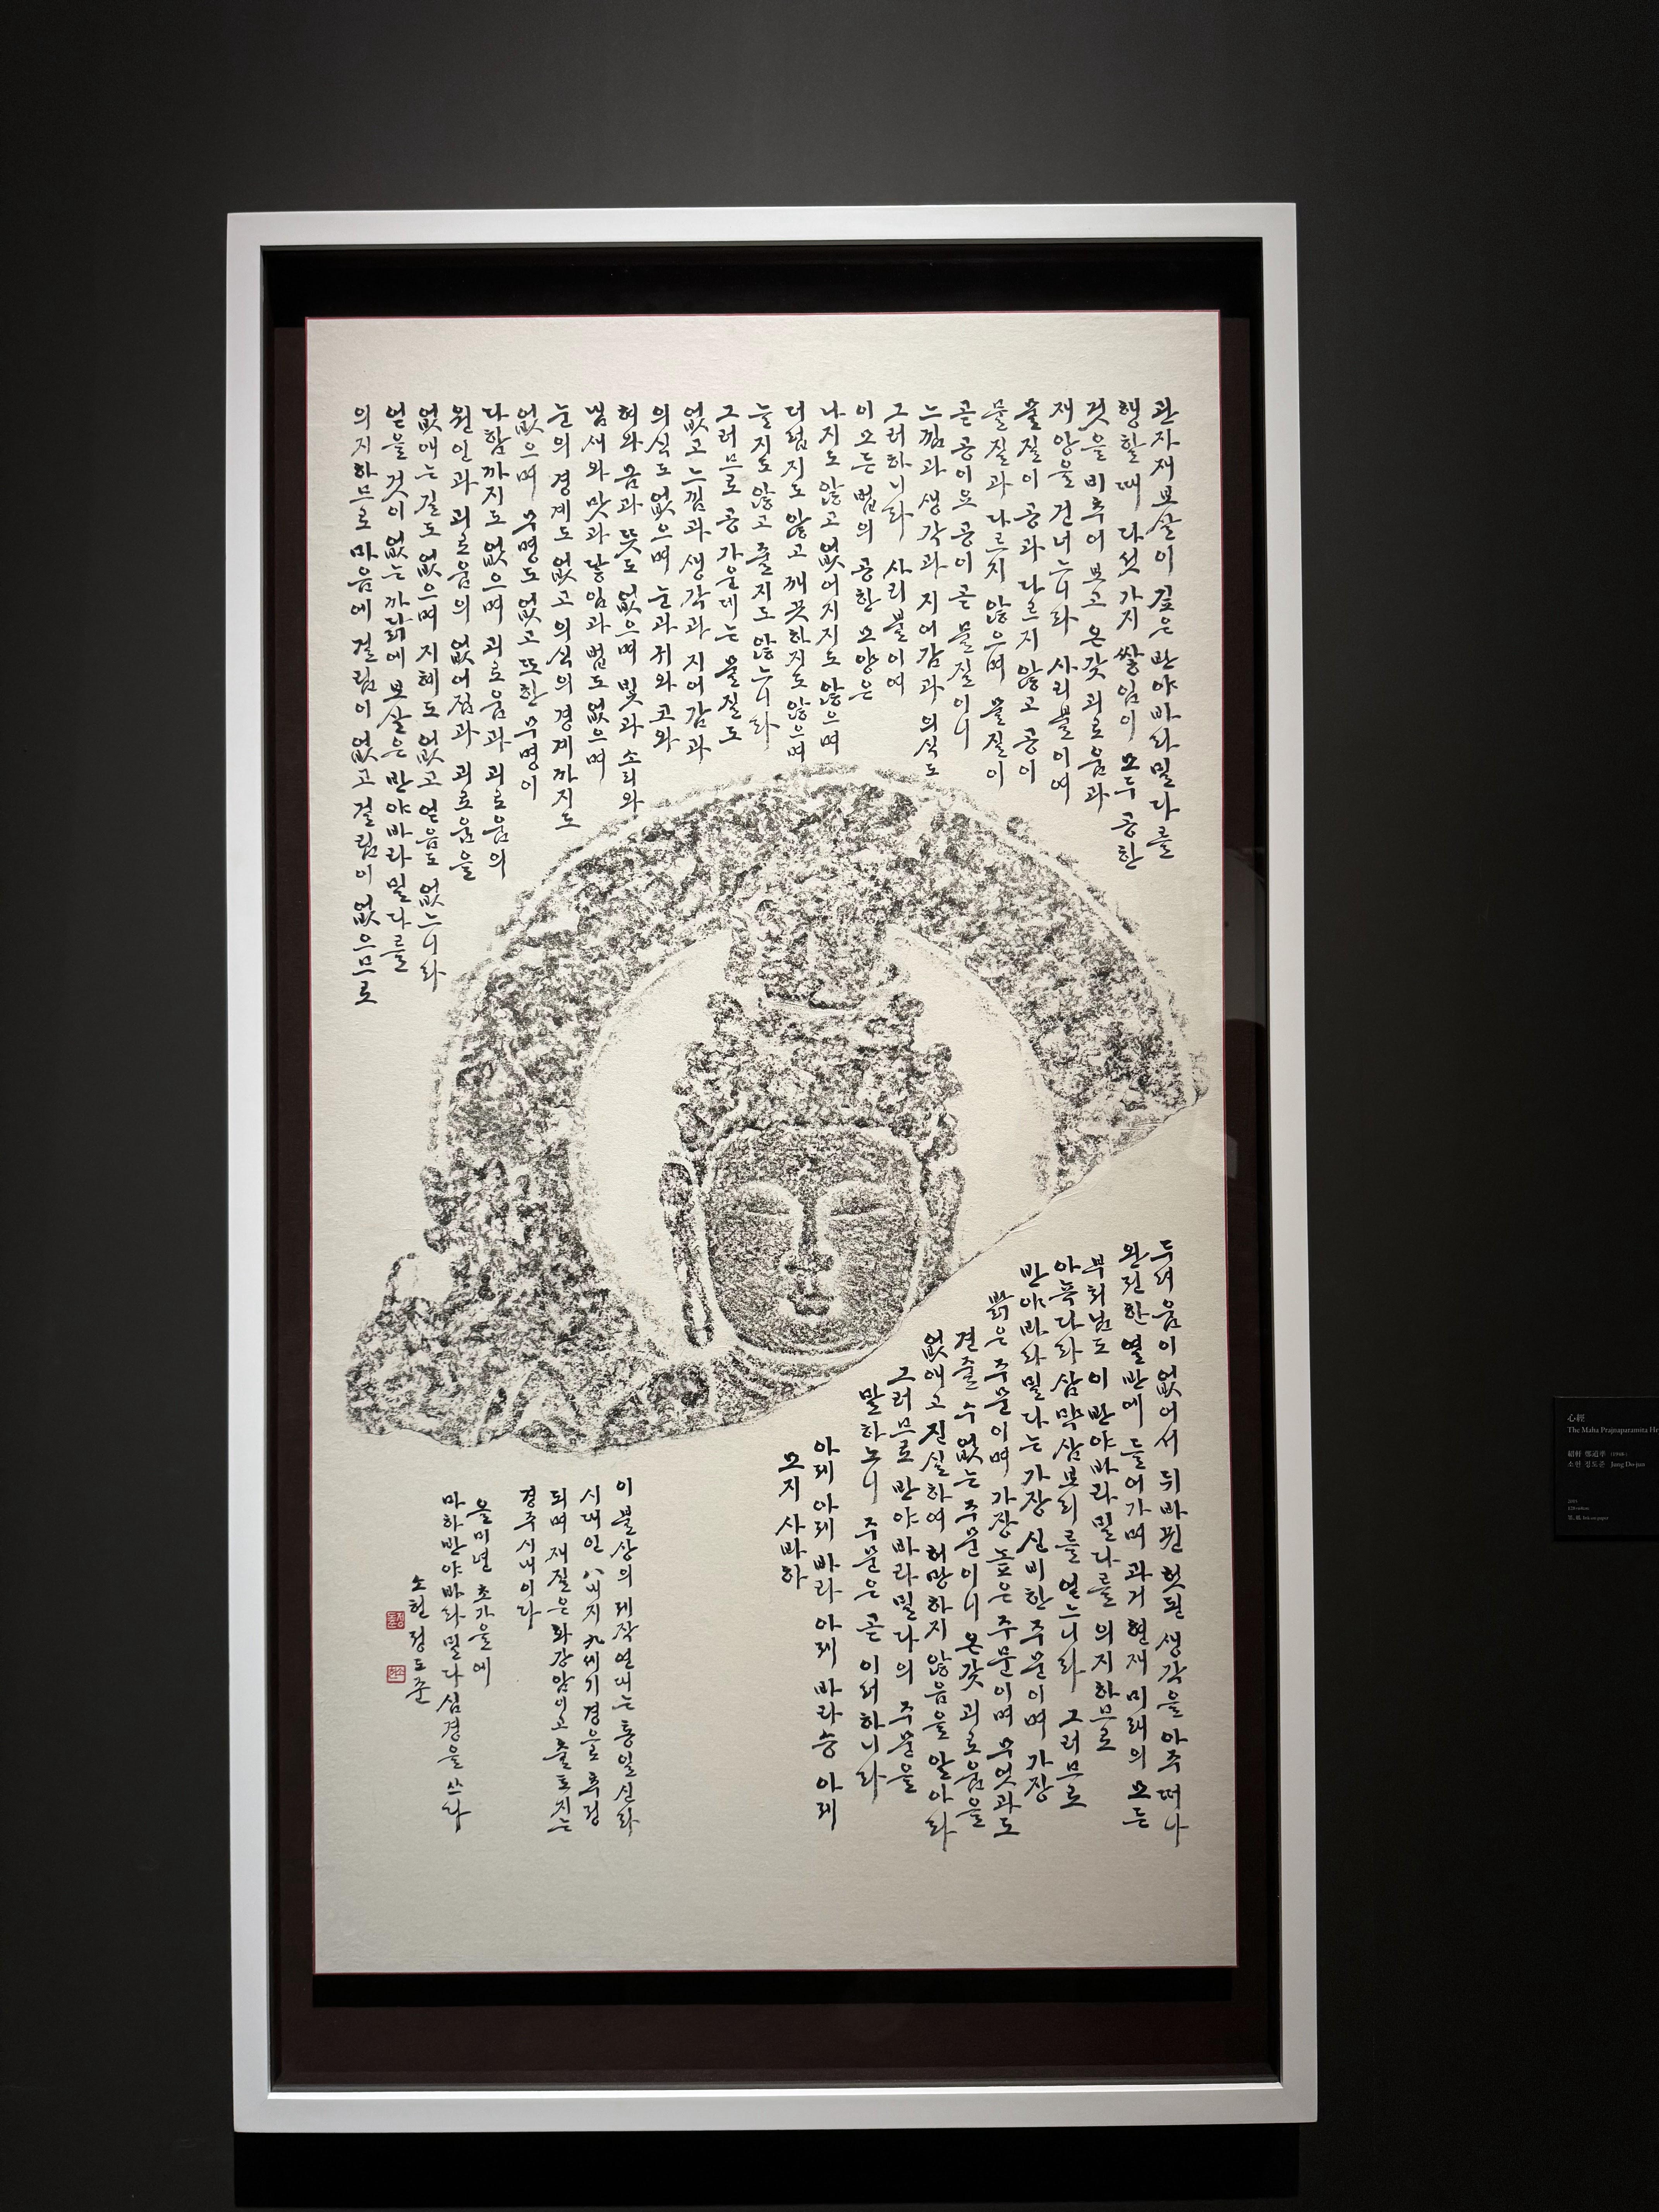 관자재보살이 깊은 반야바라밀다를
행할 때 다섯 가지 쌓임이 모두 공한
것을 비추어 보고 온갖 괴로움과
재앙을 건너느니라 사리불이여
물질이 공과 다르지 않고 공이
물질과 다르지 않으며 물질이
곧 공이요 공이 곧 물질이니
느낌과 생각과 지어감과 의식도
그러하니라 사리불이여
이 모든 법의 공한 모양은
나지도 않고 없어지지도 않으며
더럽지도 않고 깨끗하지도 않으며
늘지도 않고 줄지도 않느니라
그러므로 공 가운데는 물질도
없고 느낌과 생각과 지어감과
의식도 없으며 눈과 귀와 코와
혀와 몸과 뜻도 없으며 빛과 소리와
냄새와 맛과 닿임과 법도 없으며
눈의 경계도 없고 의식의 경계까지도
없으며 무명도 없고 또한 무명이
다함까지도 없으며 괴로움과 괴로움의
원인과 괴로움의 없어짐과 괴로움을
없애는 길도 없으며 지혜도 없고 얻음도 없느니라
얻을 것이 없는 까닭에 보살은 반야바라밀다를
의지하므로 마음에 걸림이 없고 걸림이 없으므로
두려움이 없어서 뒤바뀐 헛된 생각을 아주 떠나
완전한 열반에 들어가며 과거 현재 미래의 모든
부처님도 이 반야바라밀다를 의지하므로
아뇩다라삼막삼보리를 얻느니라 그러므로
반야바라밀다는 가장 신비한 주문이며 가장
밝은 주문이며 가장 높은 주문이며 무엇과도
견줄 수 없는 주문이니 온갖 괴로움을
없애고 진실하여 허망하지 않음을 알아라
그러므로 반야바라밀다의 주문을
말하노니 주문은 곧 이러하니라
아제 아제 바라 아제 바라승 아제
모지 사바하
이 불상의 제작 연대는 통일신라
시대인 八내지 九세기경으로 추정
되며 재질은 화강암이고 출토지는
경주시내이다
을미년 초가을에
마하반야바라밀다심경을 쓰다
소헌 정도준
心經
The Maha Prajnaparamita He
紹軒 鄭道準 (1948-)
소헌 정도준 Jung Do-jun